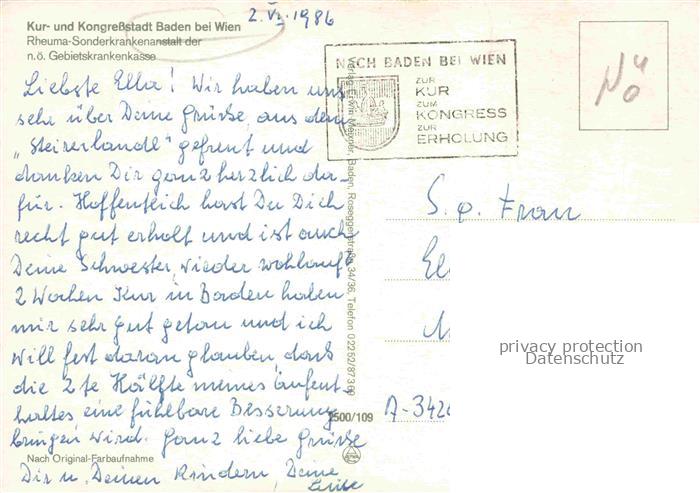 2.VI.1986
Kur- und Kongreßstadt Baden bei Wien
Rheuma-Sonderkrankenanstalt der
n.ö. Gebietskrankenkasse
Liebste Ella! Wir haben uns
sehr über Deine Grüße aus dem
„Steirerlandl" gefreut und
danken Dir ganz herzlich da-
für. Hoffentlich hast Du Dich
recht gut erholt und ist auch
Deine Schwester wieder wohlauf.
2 Wochen Kur in Baden haben
mir sehr gut getan und ich
will fest daran glauben, dass
die 2te Hälfte meines Aufent-
haltes eine fühlbare Besserung
bringen wird. Ganz liebe Grüße
Dir u. Deinen Kindern, Deine
Nach Original-Farbaufnahme
Verlag Erwin Mepner, Baden, Roseggerstraße 34/36, Telefon 02252/87369
2500/109
NACH BADEN BEI WIEN
ZUR
KUR
ZUM
KONGRESS
ZUR
ERHOLUNG
NÖ
S. g. Frau
A-342
privacy protection
Datenschutz